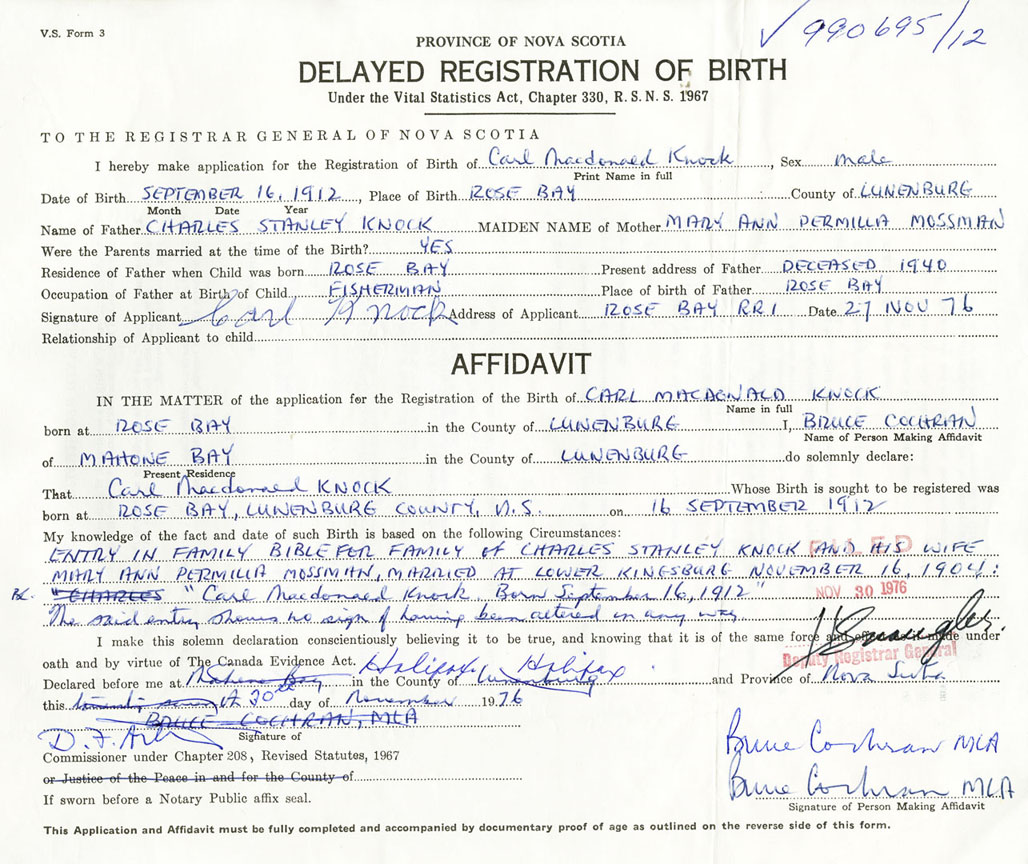 V.S. Form 3
✓ 990695/12
PROVINCE OF NOVA SCOTIA
DELAYED REGISTRATION OF BIRTH
Under the Vital Statistics Act, Chapter 330, R.S.N.S. 1967
TO THE REGISTRAR GENERAL OF NOVA SCOTIA
I hereby make application for the Registration of Birth of Carl Macdonald Knock, Sex male
Print Name in full
Date of Birth SEPTEMBER 16, 1912, Place of Birth ROSE BAY County of LUNENBURG
Month Date Year
Name of Father CHARLES STANLEY KNOCK MAIDEN NAME of Mother MARY ANN PERMILLA MOSSMAN
Were the Parents married at the time of the Birth? YES
Residence of Father when Child was born ROSE BAY Present address of Father DECEASED 1940
Occupation of Father at Birth of Child FISHERMAN Place of birth of Father ROSE BAY
Signature of Applicant Carl Knock Address of Applicant ROSE BAY RR1 Date 27 NOV 76
Relationship of Applicant to child
AFFIDAVIT
IN THE MATTER of the application for the Registration of the Birth of CARL MACDONALD KNOCK
Name in full
born at ROSE BAY in the County of LUNENBURG I, BRUCE COCHRAN
Name of Person Making Affidavit
of MAHONE BAY in the County of LUNENBURG do solemnly declare:
Present Residence
That Carl Macdonald KNOCK Whose Birth is sought to be registered was
born at ROSE BAY, LUNENBURG COUNTY, N.S. on 16 SEPTEMBER 1912
My knowledge of the fact and date of such Birth is based on the following Circumstances:
ENTRY IN FAMILY BIBLE FOR FAMILY of CHARLES STANLEY KNOCK AND HIS WIFE
FILED
MARY ANN PERMILLA MOSSMAN, MARRIED AT LOWER KINGSBURG NOVEMBER 16, 1904:
BC. "CHARLES "Carl Macdonald Knock Born September 16, 1912"
NOV 30 1976
The said entry shows no sign of having been altered in any way
I make this solemn declaration conscientiously believing it to be true, and knowing that it is of the same force and effect as if made under
oath and by virtue of The Canada Evidence Act.
Deputy Registrar General
Declared before me at Mahone Bay Halifax in the County of Lunenburg Halifax and Province of Nova Scotia
this twenty seven th 30th day of November 1976
BRUCE COCHRAN, MLA
Signature of
Bruce Cochran MLA
Commissioner under Chapter 208, Revised Statutes, 1967
or Justice of the Peace in and for the County of
Bruce Cochran MLA
If sworn before a Notary Public affix seal.
Signature of Person Making Affidavit
This Application and Affidavit must be fully completed and accompanied by documentary proof of age as outlined on the reverse side of this form.